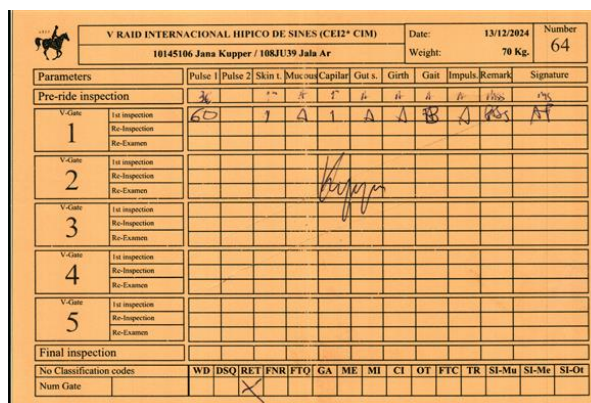 V RAID INTERNACIONAL HIPICO DE SINES (CEI2* CIM) Date: 13/12/2024 Number
10145106 Jana Kupper / 108JU39 Jala Ar Weight: 70 Kg. 64
Parameters Pulse 1 Pulse 2 Skin t. Mucous Capilar Gut s. Girth Gait Impuls. Remark Signature
Pre-ride inspection 36 A A A A
V-Gate 1st inspection 60 1 A 1 A A B A
1 Re-Inspection
Re-Examen
V-Gate 1st inspection
2 Re-Inspection
Re-Examen
V-Gate 1st inspection
3 Re-Inspection
Re-Examen
V-Gate 1st inspection
4 Re-Inspection
Re-Examen
V-Gate 1st inspection
5 Re-Inspection
Re-Examen
Final inspection
No Classification codes WD DSQ RET FNR FTQ GA ME MI CI OT FTC TR SI-Mu SI-Me SI-Ot
Num Gate X